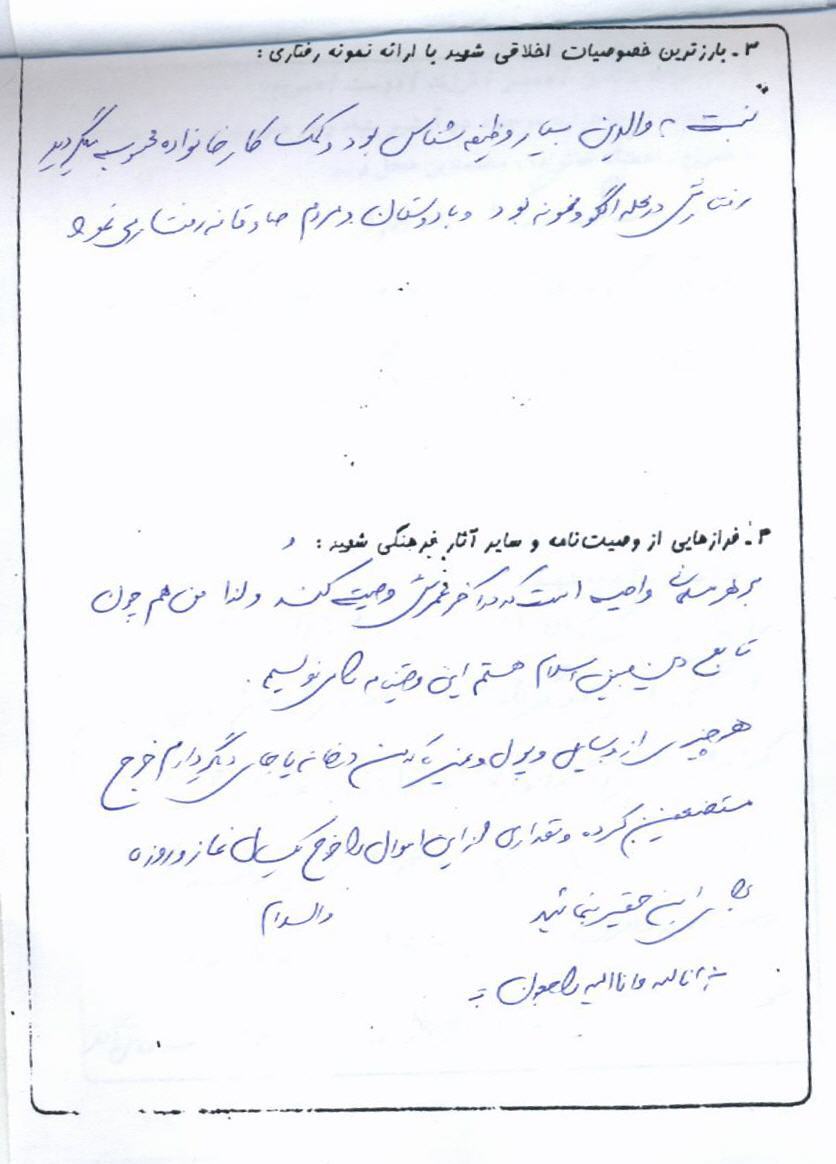 ۳ـ بارزترین خصوصیات اخلاقی شهید با ارائه نمونه رفتاری :
نسبت به والدین بسیار وظیفه شناس بود و کمک کار خانواده محسوب میگردید
رفتارش در محله الگو و نمونه بود و با دوستان و مردم صادقانه رفتار می نمود
۴ـ فرازهایی از وصیت نامه و سایر آثار فرهنگی شهید :
بر هر مسلمان واجب است که در آخر عمرش وصیت کند و لذا من هم چون
تابع دین مبین اسلام هستم این وصیتنامه را می نویسم .
هر چیزی از وسایل و پول و غیره که من در خانه یا جای دیگر دارم خرج
مستضعفین کرده و مقداری از این اموال را خرج یکسال نماز و روزه
برای این حقیر بنمائید والسلام
انا لله و انا الیه راجعون